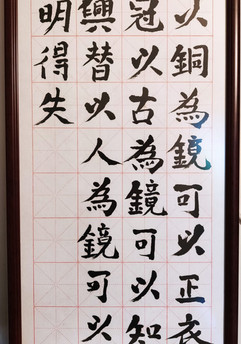 以銅為鏡可以正衣
冠以古為鏡可以知
興替以人為鏡可以
明得失